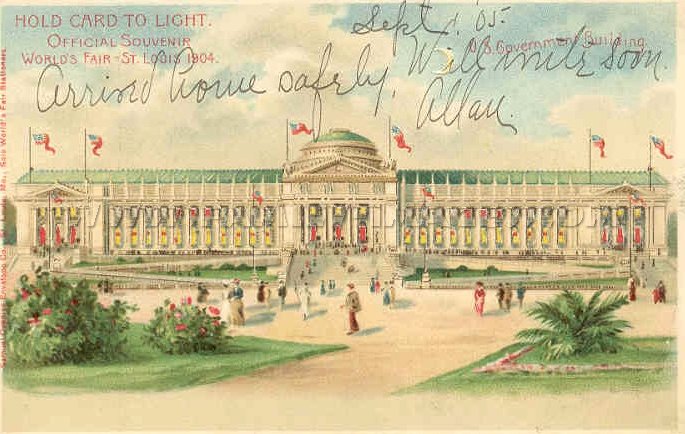 HOLD CARD TO LIGHT.
OFFICIAL SOUVENIR
WORLD'S FAIR - ST. LOUIS 1904.
U.S. Government Building.
Sept 1. 05.
Arrived home safely. Will write soon.
Allan.